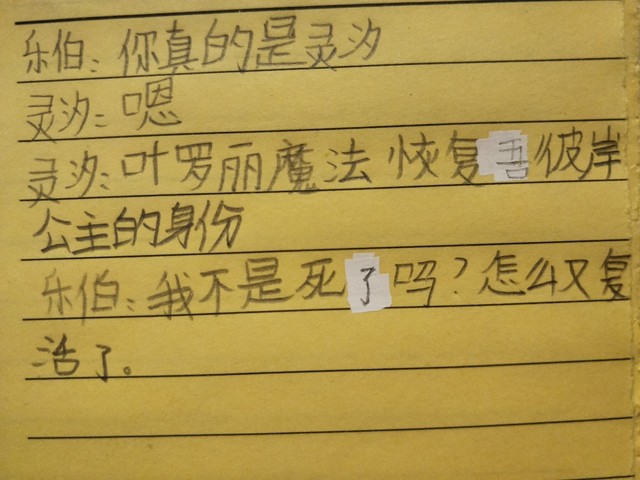 乐伯：你真的是灵汐
灵汐：嗯
灵汐：叶罗丽魔法恢复吾彼岸
公主的身份
乐伯：我不是死了吗？怎么又复
活了。